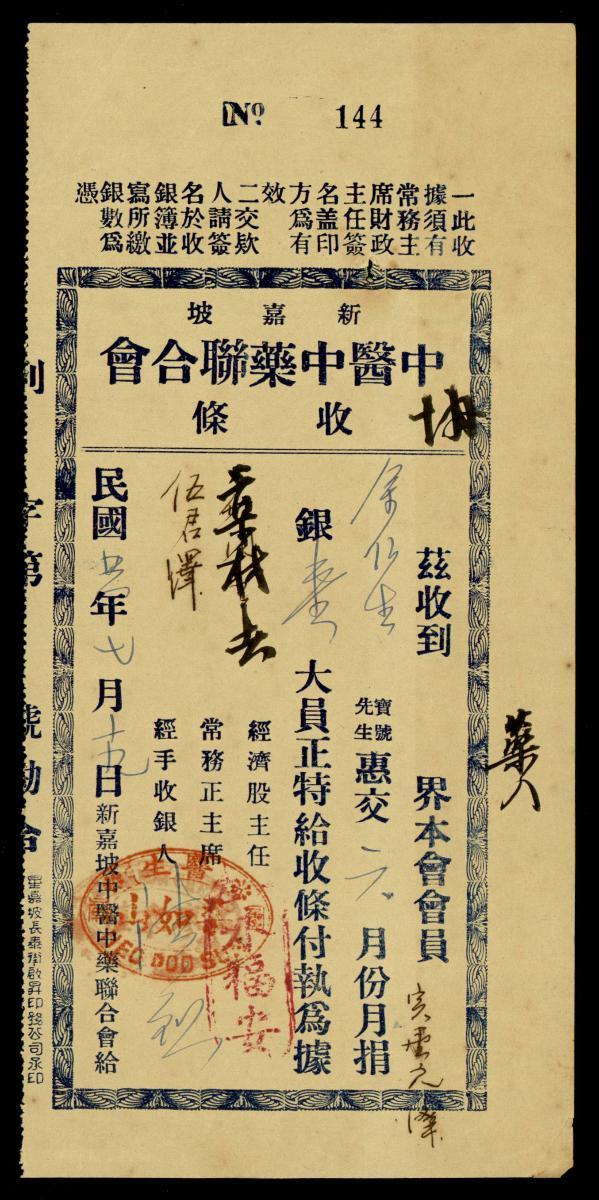 No 144
一此收
據須有
常務主
席財政
主任簽
名盖印
方爲有
效
二交欵
人請簽
名於收
銀簿並
寫所繳
銀數爲
憑
新嘉坡
中醫中藥聯合會
收條
茲收到 界本會會員
余仁生 寶號先生惠交 六 月份月捐
銀 壹 大員正特給收條付執爲據
經濟股主任
常務正主席
經手收銀人
伍君澤
民國 年七月十九日新嘉坡中醫中藥聯合會給
字第 號
星嘉坡長泰街啟昇印務公司承印
福安